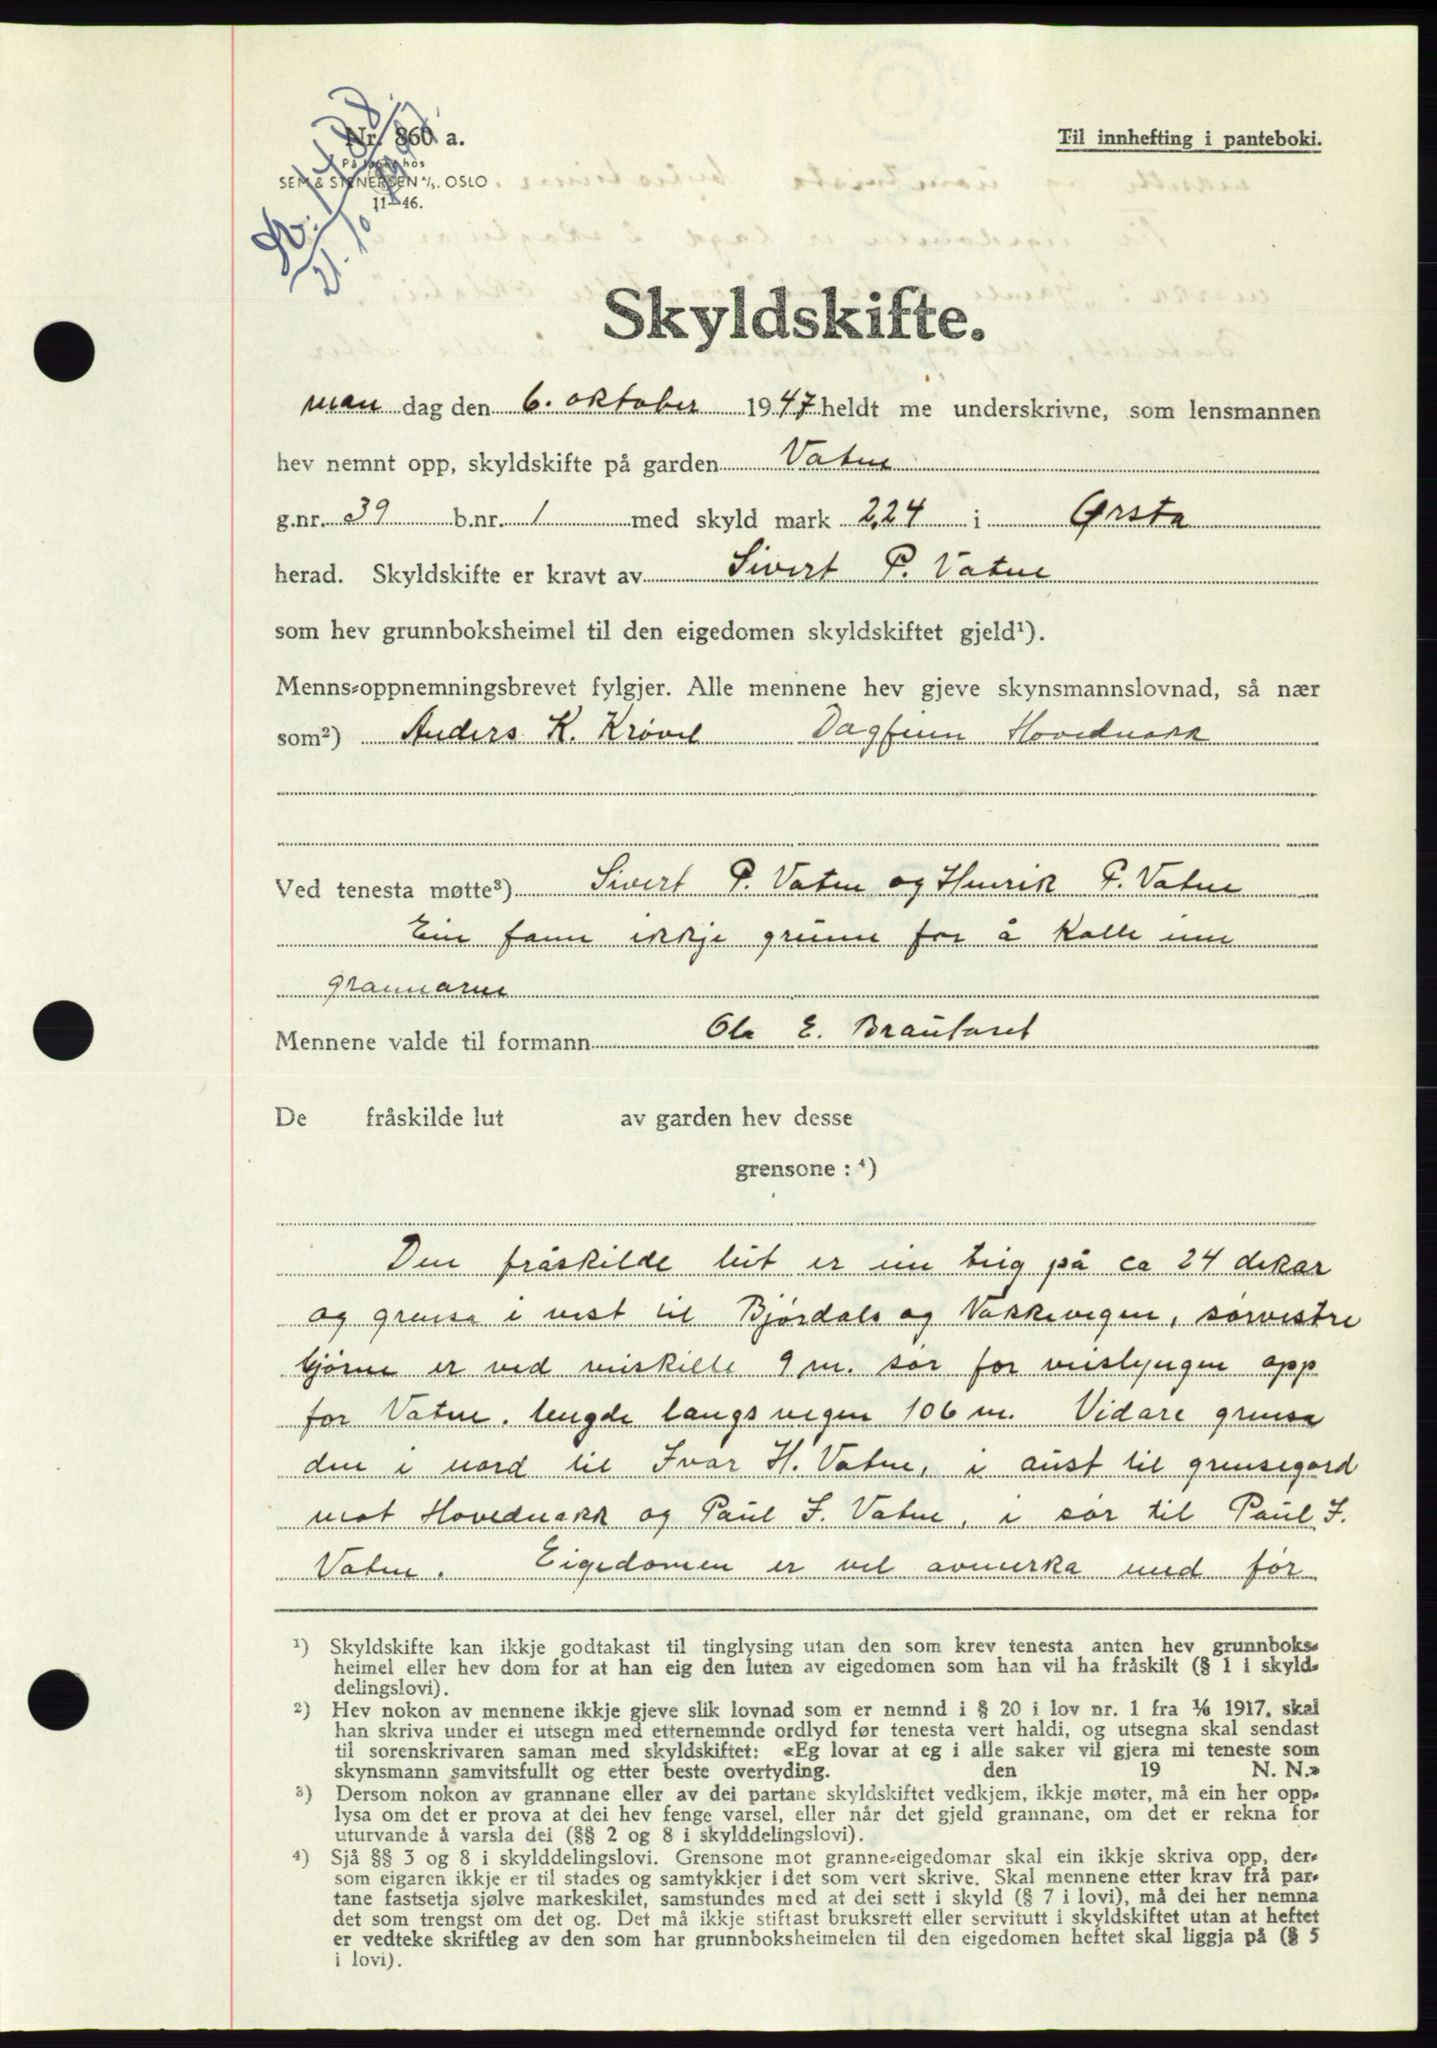 Nr. 860 a.
Til innhefting i panteboki.
På lager hos
SEM & STENERSEN A/S, OSLO
11—46.
Skyldskifte.
man dag den 6. oktober 1947 heldt me underskrivne, som lensmannen
hev nemnt opp, skyldskifte på garden Vatne
g.nr. 39 b.nr. 1 med skyld mark 2,24 i Ørsta
herad. Skyldskifte er kravt av Sivert P. Vatne
som hev grunnboksheimel til den eigedomen skyldskiftet gjeld¹).
Menns-oppnemningsbrevet fylgjer. Alle mennene hev gjeve skynsmannslovnad, så nær
som²) Anders K. Krøvel Dagfinn Hovednakk
Ved tenesta møtte³) Sivert P. Vatne og Henrik P. Vatne
Ein fann ikkje grunn for å kalle inn
grannarne
Mennene valde til formann Ola E. Brautaset
De fråskilde lut av garden hev desse
grensone : ⁴)
Den fråskilde lut er ein teig på ca 24 dekar
og grensa i vest til Bjørdals og Nakkevegen, sørvestre
hjørne er ved 9 m. sør for opp
for Vatne. lengde langs vegen 106 m. Vidare grensa
den i nord til Ivar H. Vatne, i aust til grensegard
mot Hovednakk og Paul I. Vatne, i sør til Paul I.
Vatne. Eigedomen er vel avmerka med før
¹) Skyldskifte kan ikkje godtakast til tinglysing utan den som krev tenesta anten hev grunnboks-
heimel eller hev dom for at han eig den luten av eigedomen som han vil ha fråskilt (§ 1 i skyld-
delingslovi).
²) Hev nokon av mennene ikkje gjeve slik lovnad som er nemnd i § 20 i lov nr. 1 fra 1/6 1917, skal
han skriva under ei utsegn med etternemnde ordlyd før tenesta vert haldi, og utsegna skal sendast
til sorenskrivaren saman med skyldskiftet: «Eg lovar at eg i alle saker vil gjera mi teneste som
skynsmann samvitsfullt og etter beste overtyding. den 19 N. N.»
³) Dersom nokon av grannane eller av dei partane skyldskiftet vedkjem, ikkje møter, må ein her opp-
lysa om det er prova at dei hev fenge varsel, eller når det gjeld grannane, om det er rekna for
uturvande å varsla dei (§§ 2 og 8 i skylddelingslovi).
⁴) Sjå §§ 3 og 8 i skylddelingslovi. Grensone mot granne-eigedomar skal ein ikkje skriva opp, der-
som eigaren ikkje er til stades og samtykkjer i det som vert skrive. Skal mennene etter krav frå par-
tane fastsetja sjølve markeskilet, samstundes med at dei sett i skyld (§ 7 i lovi), må dei her nemna
det som trengst om det og. Det må ikkje stiftast bruksrett eller servitutt i skyldskiftet utan at heftet
er vedteke skriftleg av den som har grunnboksheimelen til den eigedomen heftet skal liggja på (§ 5
i lovi).